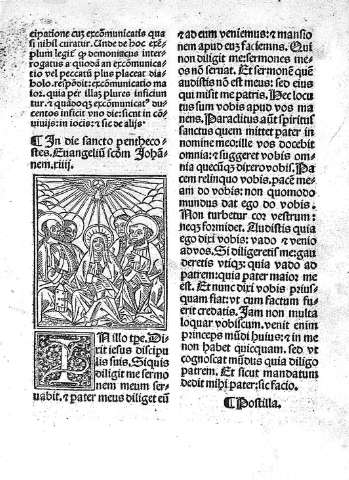 cipatione cuz excōmunicatis qua
si nihil curatur. Unde de hoc exē-
plum legit̄ ꝙ demoniacus inter
rogatus a quodā an excōmunica-
tio vel peccatū plus placeat dia-
bolo. respōdit: excōmunicatio ma
ior. quia per illas plures inficiun
tur. ⁊ quādoqꝫ excōmunicatꝰ du-
centos inficit vno die: sicut in cō
uiuijs: in iocis: ⁊ sic de alijs.
¶ In die sancto penthecostes. Euangeliū scōm Johā-
nem. xiiij.
IN illo tpe. Di-
xit iesus discipu
lis suis. Siquis
diligit me sermo
nem meum ser-
uabit. ⁊ pater meus diliget eū
⁊ ad eum veniemus: ⁊ mansio
nem apud eum faciemus. Qui
non diligit me: sermones me-
os nō seruat. Et sermonē quē
audistis nō est meus: sed eius
qui misit me patris. Hec locu
tus sum vobis apud vos ma
nens. Paraclitus aūt spiritus
sanctus quem mittet pater in
nomine meo: ille vos docebit
omnia: ⁊ suggeret vobis om-
nia quecūqꝫ dixero vobis. Pa
cem relinquo vobis. pacē me-
am do vobis: non quomodo
mundus dat ego do vobis.
Non turbetur cor vestrum:
neqꝫ formidet. Audistis quia
ego dixi vobis: vado ⁊ venio
ad vos. Si diligeretis me: gau
deretis vtiqꝫ: quia vado ad
patrem: quia pater maior me
est. Et nunc dixi vobis prius-
quam fiat: vt cum factum fu-
erit credatis. Jam non multa
loquar vobiscum. venit enim
princeps mūdi huius: ⁊ in me
non habet quicquam. sed vt
cognoscat mūdus quia diligo
patrem. Et sicut mandatum
dedit mihi pater: sic facio.
¶ Postilla.